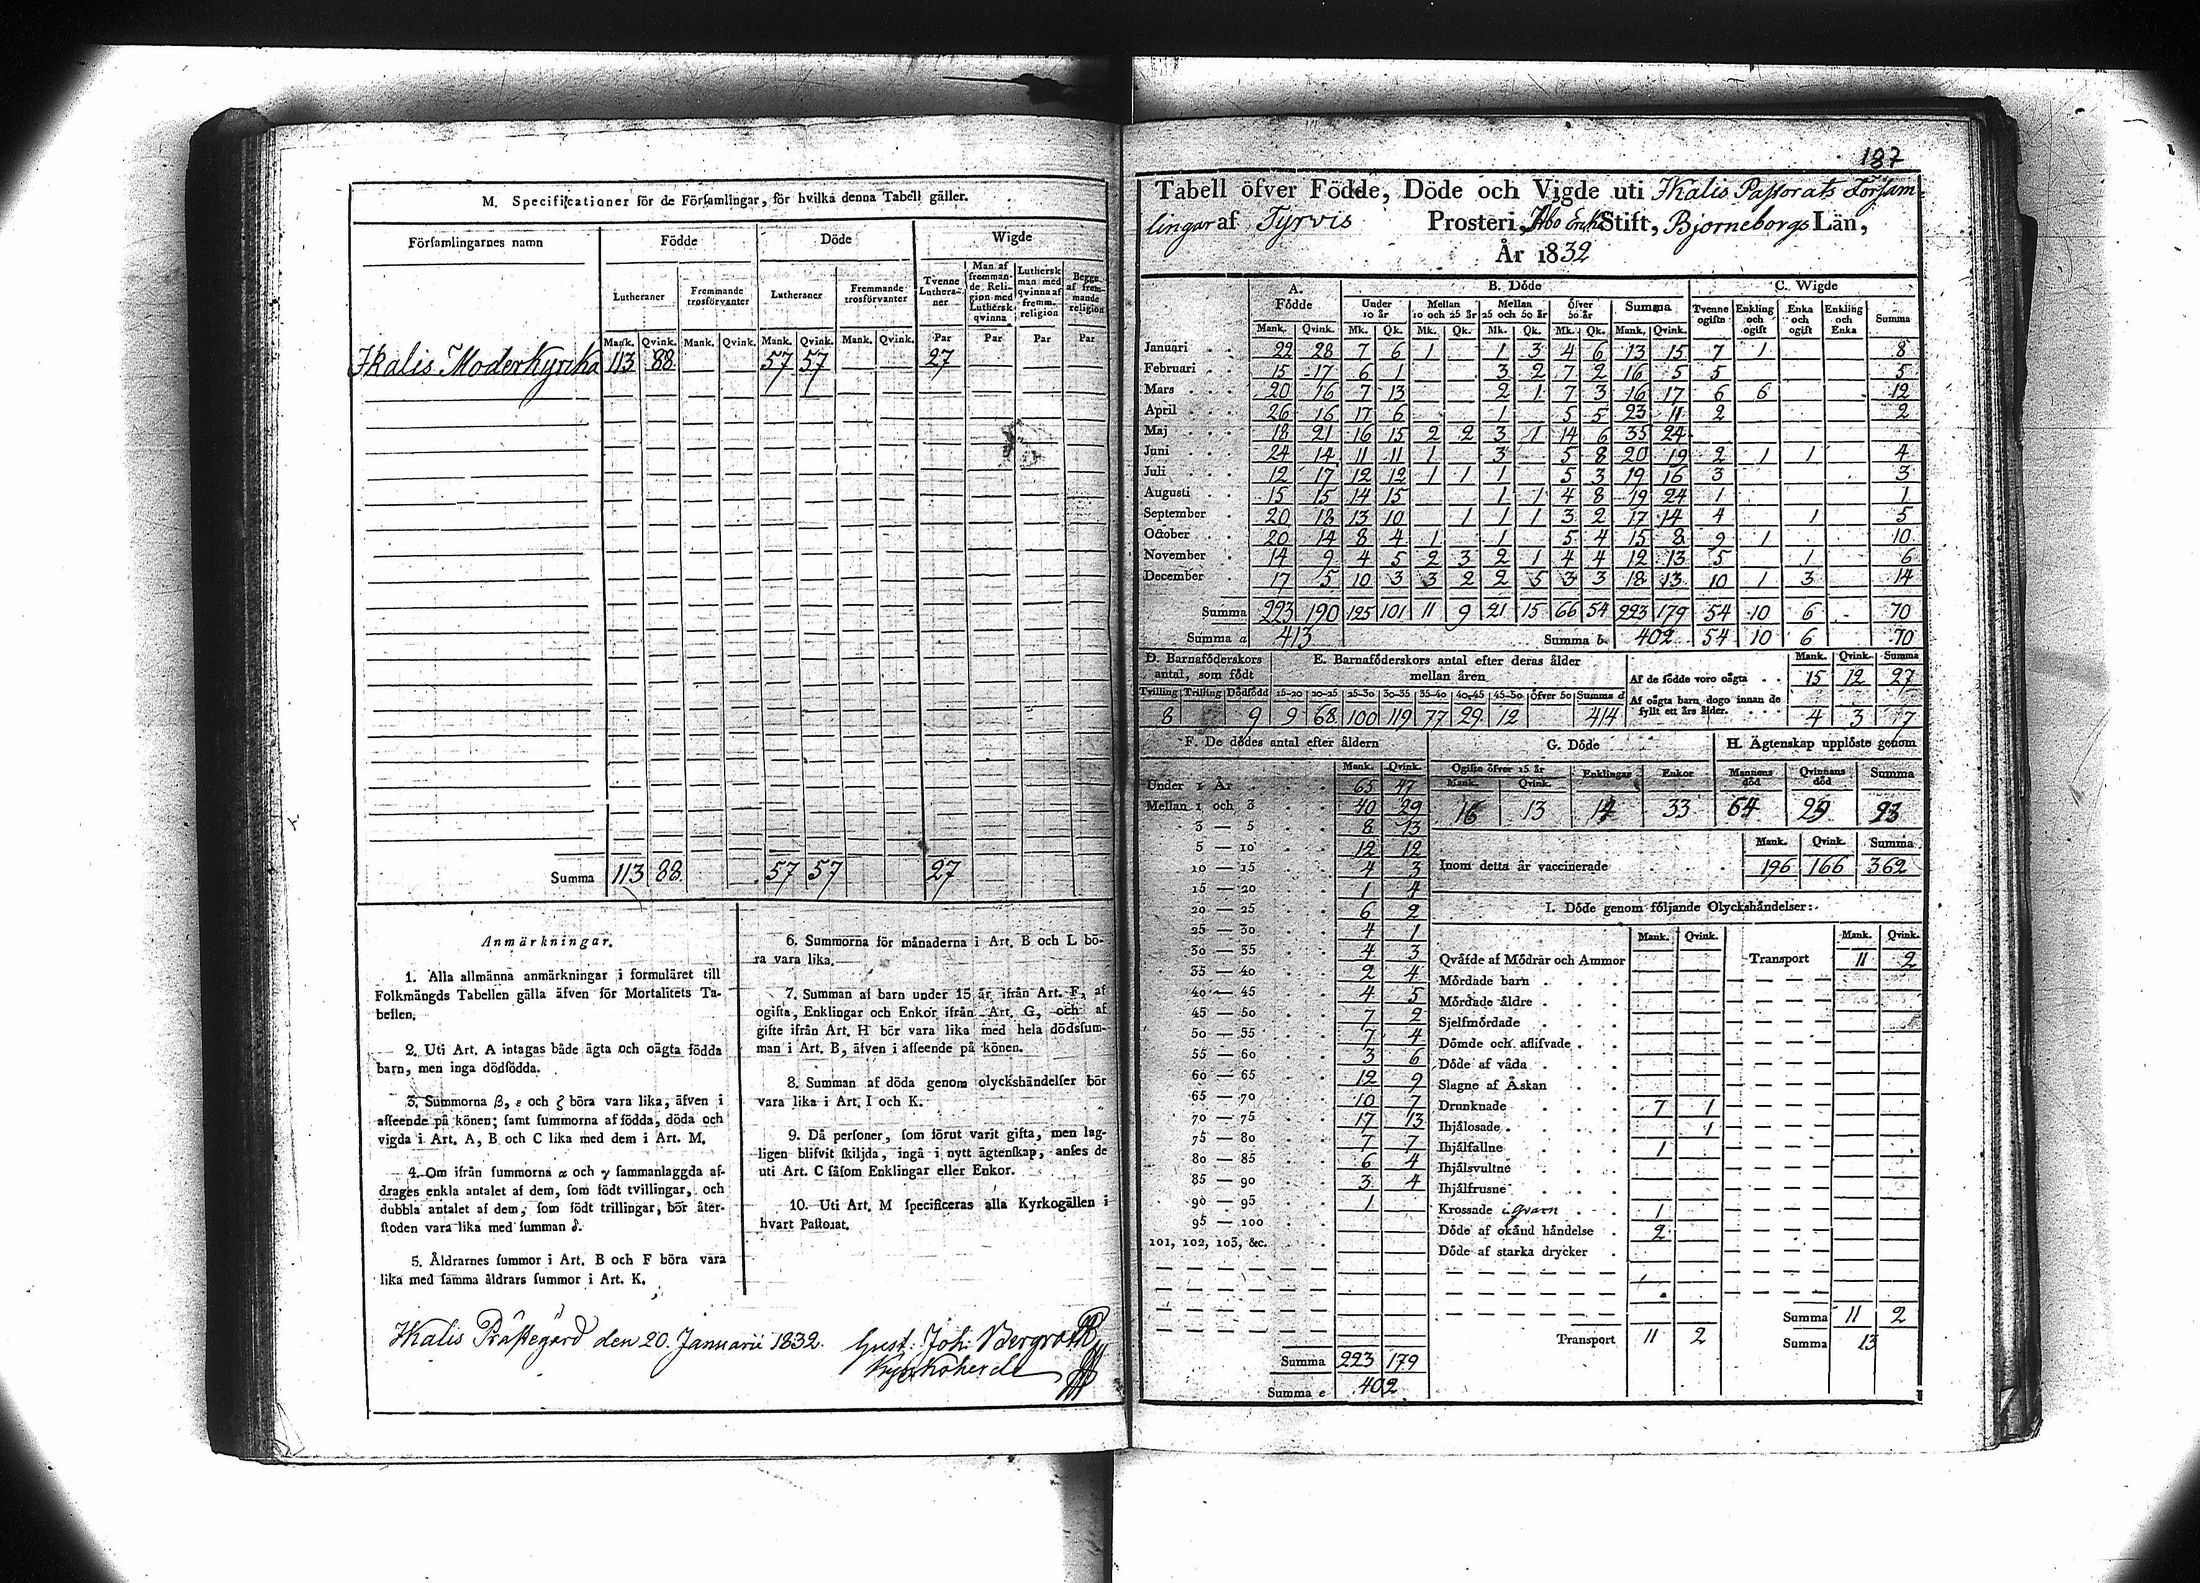 M. Specificationer för de Församlingar, för hvilka denna Tabell gäller.
Församlingarnes namn Födde Döde Wigde
Lutheraner Fremmande trosförvanter Lutheraner Fremmande trosförvanter Tvenne Lutheraner Man af fremmande Religion med Luthersk qvinna Luthersk man med qvinna af fremm. religion Begge af fremmande religion
Mank. Qvink. Mank. Qvink. Mank. Qvink. Mank. Qvink. Par Par Par Par
Ikalis Moderkyrka 113 88 57 57 27
Summa 113 88 57 57 27
Anmärkningar.
1. Alla allmänna anmärkningar i formuläret till
Folkmängds Tabellen gälla äfven för Mortalitets Ta-
bellen.
2. Uti Art. A intagas både ägta och oägta födda
barn, men inga dödfödda.
3. Summorna β, ε och ζ böra vara lika, äfven i
afseende på könen; samt summorna af födda, döda och
vigda i Art. A, B och C lika med dem i Art. M.
4. Om ifrån summorna α och γ sammanlaggda af-
drages enkla antalet af dem, som födt tvillingar, och
dubbla antalet af dem, som födt trillingar, bör åter-
stoden vara lika med summan δ.
5. Åldrarnes summor i Art. B och F böra vara
lika med samma åldrars summor i Art. K.
6. Summorna för månaderna i Art. B och L bö-
ra vara lika.
7. Summan af barn under 15 år ifrån Art. F, af
ogifta, Enklingar och Enkor ifrån Art. G, och af
gifte ifrån Art. H bör vara lika med hela dödssum-
man i Art. B, äfven i afseende på könen.
8. Summan af döda genom olyckshändelser bör
vara lika i Art. I och K.
9. Då personer, som förut varit gifta, men lag-
ligen blifvit skiljda, ingå i nytt ägtenskap, anses de
uti Art. C såsom Enklingar eller Enkor.
10. Uti Art. M specificeras alla Kyrkogällen i
hvart Pastorat.
Ikalis Prästegård den 20. Januarii 1832. Gust. Joh. Bergroth
Kyrkoherde
187
Tabell öfver Födde, Döde och Vigde uti Ikalis Pastorats Församlingar
af Tyrvis Prosteri, Åbo Stift, Björneborgs Län,
År 1832
A. Födde B. Döde C. Wigde
Under 10 år Mellan 10 och 25 år Mellan 25 och 50 år Öfver 50 år Summa Tvenne ogifte Enkling och ogift Enka och ogift Enkling och Enka Summa
Mank. Qvink. Mk. Qk. Mk. Qk. Mk. Qk. Mk. Qk. Mank. Qvink.
Januari 22 28 7 6 1 1 3 4 6 13 15 7 1 8
Februari 15 17 6 1 3 2 7 2 16 5 5 5
Mars 20 16 7 13 2 1 7 3 16 17 6 6 12
April 26 16 17 6 1 5 5 23 11 2 2
Maj 18 21 16 15 2 2 3 1 14 6 35 24
Juni 24 14 11 11 1 3 5 8 20 19 2 1 1 4
Juli 12 17 12 12 1 1 1 5 3 19 16 3 3
Augusti 15 15 14 15 1 1 4 8 19 24 1 1
September 20 18 13 10 1 1 1 3 2 17 14 4 1 5
October 20 14 8 4 1 1 5 4 15 8 9 1 10
November 14 9 4 5 2 3 2 1 4 4 12 13 5 1 6
December 17 5 10 3 3 2 2 5 3 3 18 13 10 1 3 14
Summa 223 190 125 101 11 9 21 15 66 54 223 179 54 10 6 70
Summa a 413 Summa b 402 54 10 6 70
D. Barnaföderskors antal, som födt E. Barnaföderskors antal efter deras ålder mellan åren Mank. Qvink. Summa
Af de födde voro oägta 15 12 27
Tvilling Trilling Dödfödd 15-20 20-25 25-30 30-35 35-40 40-45 45-50 öfver 50 Summa d
8 9 9 68 100 119 77 29 12 414
Af oägta barn dogo innan de fyllt ett års ålder 4 3 7
F. De dödes antal efter åldern G. Döde H. Ägtenskap upplöste genom
Mank. Qvink. Ogifte öfver 15 år Enklingar Enkor Mannens död Qvinnans död Summa
Mank. Qvink.
16 13 14 33 64 29 93
Under 1 År 65 47
Mellan 1 och 3 40 29
3 — 5 8 13
5 — 10 12 12
10 — 15 4 3
15 — 20 1 4
20 — 25 6 2
25 — 30 4 1
30 — 35 4 3
35 — 40 2 4
40 — 45 4 5
45 — 50 7 2
50 — 55 7 4
55 — 60 3 6
60 — 65 12 9
65 — 70 10 7
70 — 75 17 13
75 — 80 7 7
80 — 85 6 4
85 — 90 3 4
90 — 95 1
95 — 100
101, 102, 103, &c.
Summa 223 179
Summa e 402
Mank. Qvink. Summa
Inom detta år vaccinerade 196 166 362
I. Döde genom följande Olyckshändelser:
Mank. Qvink. Mank. Qvink.
Qväfde af Mödrar och Ammor Transport 11 2
Mördade barn
Mördade äldre
Sjelfmördade
Dömde och aflifvade
Döde af våda
Slagne af Åskan
Drunknade 7 1
Ihjälosade 1
Ihjälfallne 1
Ihjälsvultne
Ihjälfrusne
Krossade i qvarn 1
Döde af okänd händelse 2
Döde af starka drycker
Summa 11 2
Transport 11 2 Summa 13